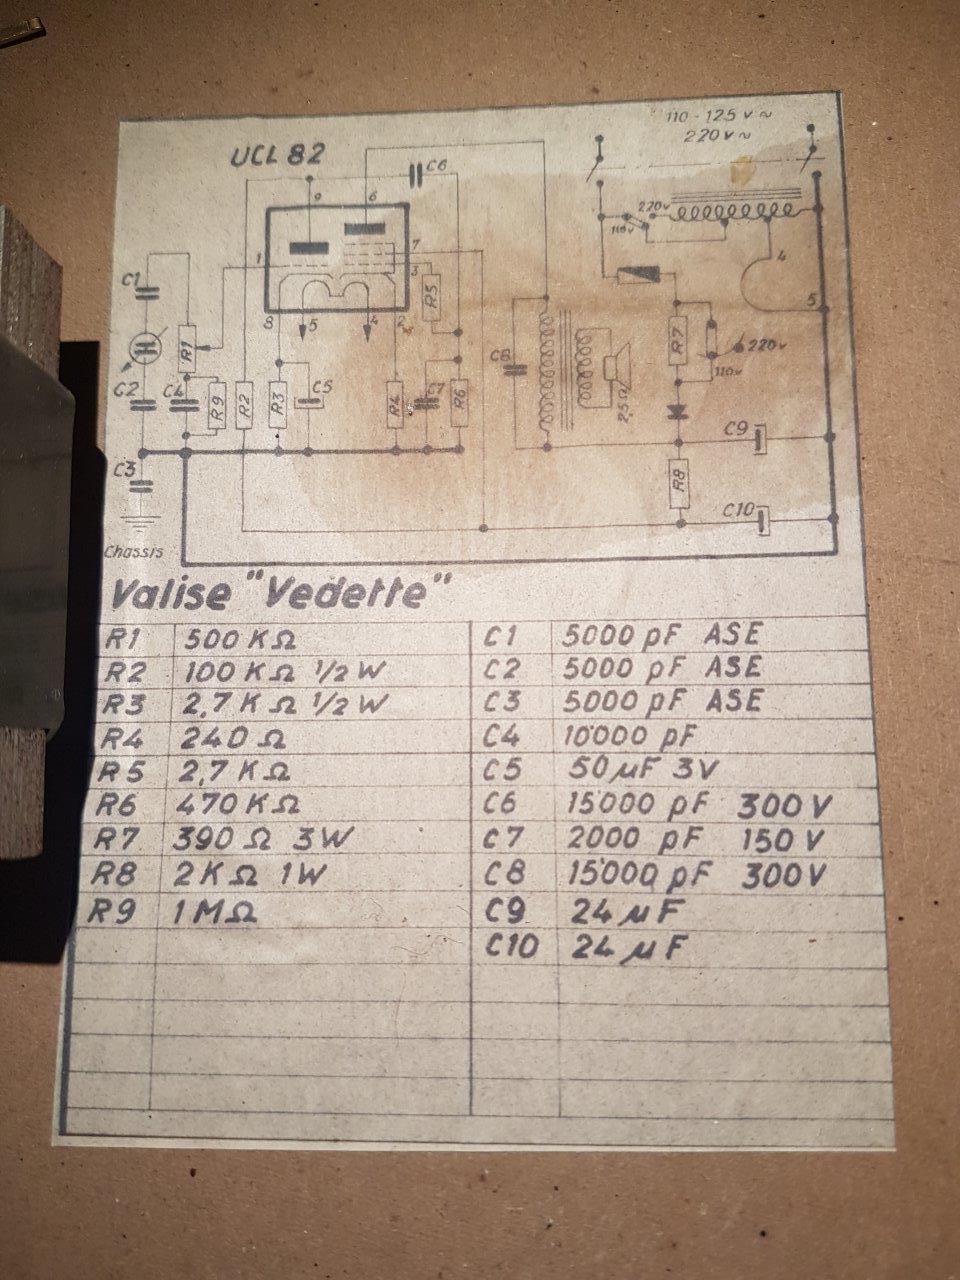 110 - 125 V ~
220 V ~
UCL 82
C6
9
6
220v
110v
1
7
3
4
5
C1
R5
8
5
4
2
R1
R7
220v
110v
C8
2,5Ω
C2
C4
R9
R2
R3
C5
R4
C7
R6
C9
C3
R8
C10
Chassis
Valise "Vedette"
R1 500 KΩ C1 5000 pF ASE
R2 100 KΩ 1/2 W C2 5000 pF ASE
R3 2,7 KΩ 1/2 W C3 5000 pF ASE
R4 240 Ω C4 10'000 pF
R5 2,7 KΩ C5 50 µF 3V
R6 470 KΩ C6 15'000 pF 300 V
R7 390 Ω 3W C7 2000 pF 150 V
R8 2 KΩ 1W C8 15'000 pF 300 V
R9 1 MΩ C9 24 µF
C10 24 µF